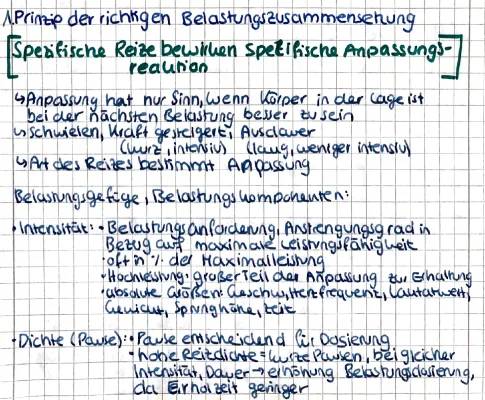 1. Prinzip der richtigen Belastungszusammensetzung
[Spezifische Reize bewirken spezifische Anpassungs-
reaktion]
↳ Anpassung hat nur Sinn, wenn Körper in der Lage ist
bei der nächsten Belastung besser zu sein
↳ Schwielen, Kraft gesteigert, Ausdauer
(kurz, intensiv) (lang, weniger intensiv)
↳ Art des Reizes bestimmt Anpassung
Belastungsgefüge, Belastungskomponenten:
• Intensität: • Belastungsanforderung, Anstrengungsgrad in
Bezug auf maximale Leistungsfähigkeit
• oft in % der Maximalleistung
• Hochleistung: großer Teil der Anpassung zur Erhaltung
• absolute Größen: Geschw., Herzfrequenz, Laktatwert,
Gewicht, Sprunghöhe, Zeit
• Dichte (Pause): • Pause entscheidend für Dosierung
• hohe Reizdichte = kurze Pausen, bei gleicher
Intensität, Dauer → erhöhung Belastungsdosierung,
da Erholzeit geringer